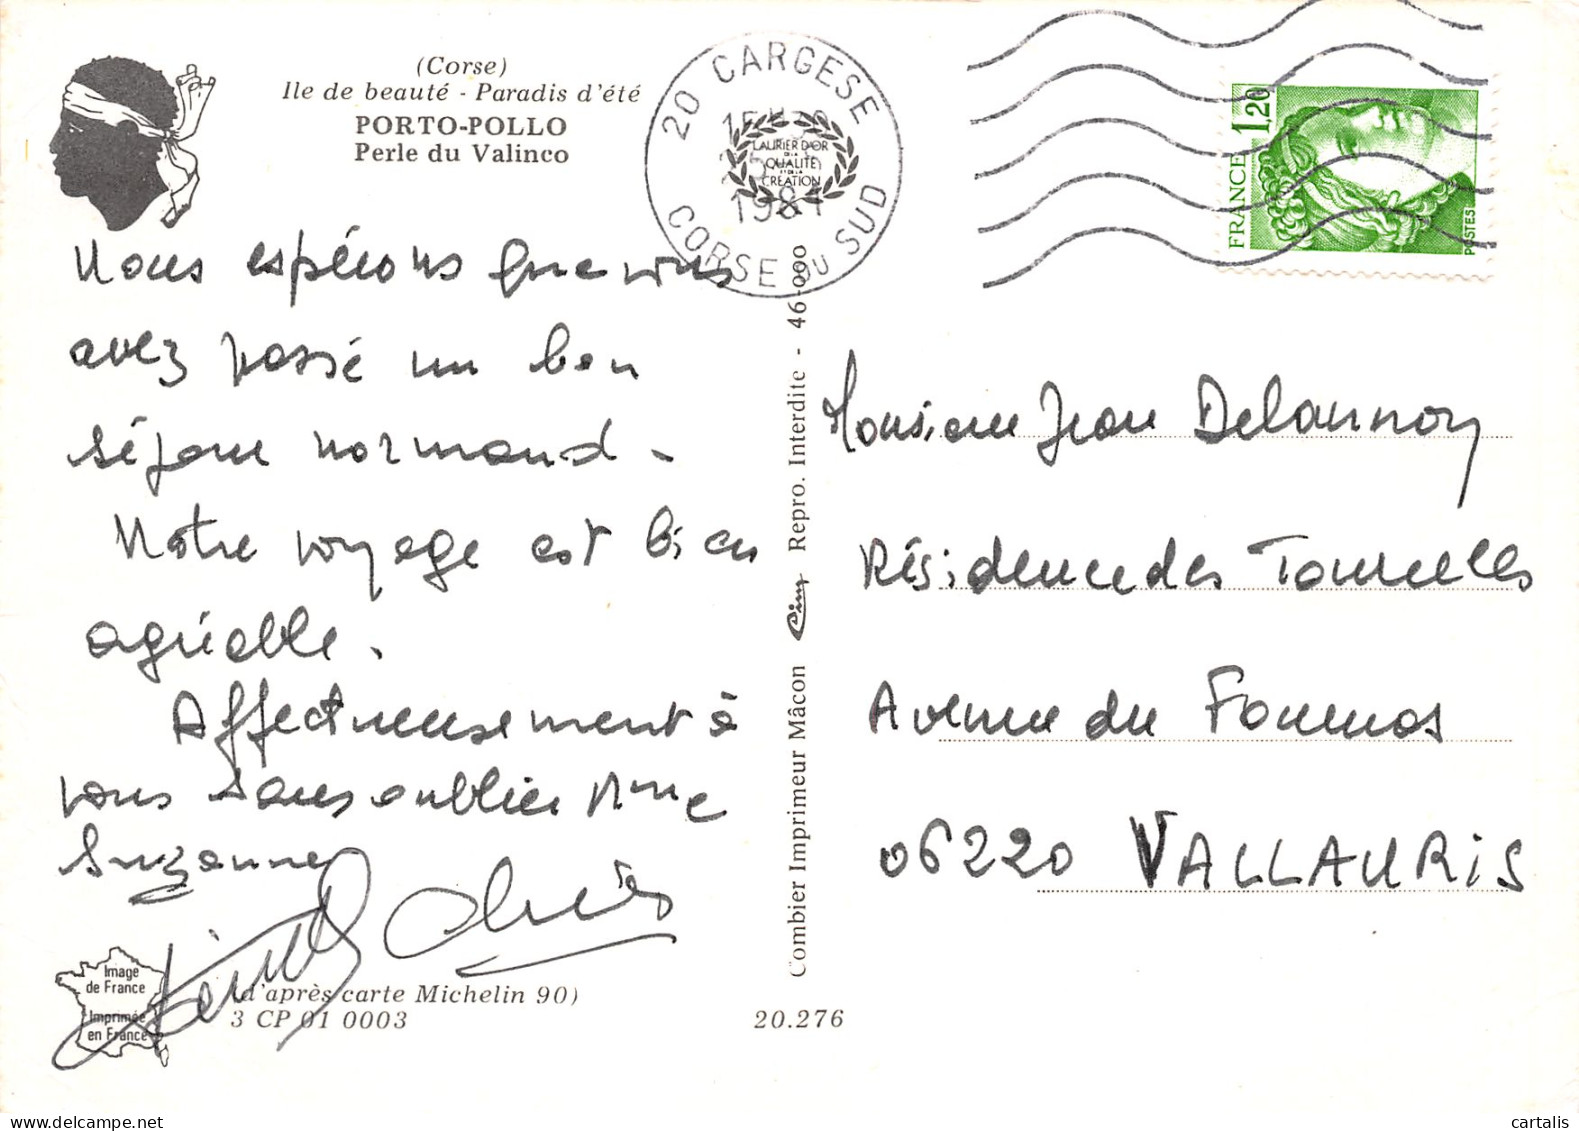 (Corse)
Ile de beauté - Paradis d'été
PORTO-POLLO
Perle du Valinco
20 CARGESE
1981
CORSE DU SUD
LAURIER D'OR
DE LA
QUALITÉ
ET DE LA
CRÉATION
FRANCE 1,20
POSTES
Nous espérons que vous
avez passé un bon
séjour normand.
Notre voyage est bien
agréable.
Affectueusement à
vous sans oublier Mme
Suzanne
Image
de France
Imprimée
en France
(d'après carte Michelin 90)
3 CP 01 0003
20.276
Combier Imprimeur Mâcon Cim Repro. Interdite - 46-000
Monsieur Jean Delannoy
Résidence des Tourelles
Avenue du Fournas
06220 VALLAURIS
cartalis